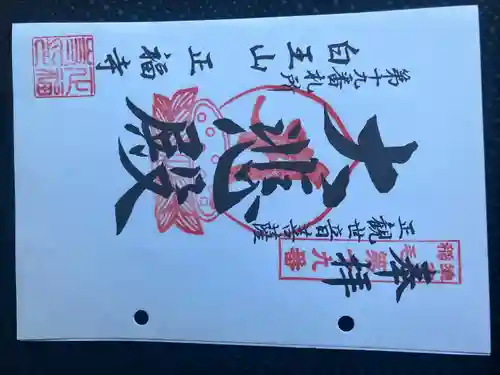 奉拝
第十九番
正観世音菩薩
大悲殿
第十九番札所
白王山
正福寺